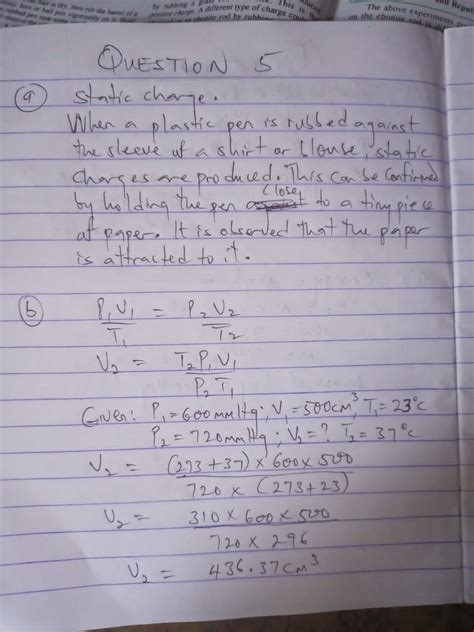 QUESTION 5
(a) Static charge.
When a plastic pen is rubbed against
the sleeve of a shirt or blouse, static
charges are produced. This can be confirmed
by holding the pen close to a tiny piece
of paper. It is observed that the paper
is attracted to it.
(b) P₁V₁/T₁ = P₂V₂/T₂
V₂ = T₂P₁V₁/P₂T₁
Given: P₁=600mmHg; V₁=500cm³, T₁=23°c
P₂=720mmHg; V₂=? T₂=37°c
V₂ = (273+37)×600×500/720×(273+23)
V₂ = 310×600×500/720×296
V₂ = 436.37cm³